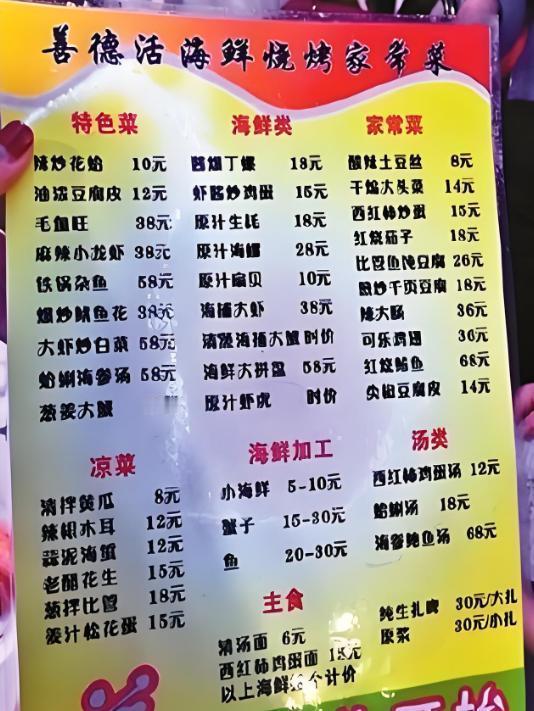 善德活海鲜烧烤家常菜
特色菜
辣炒花蛤 10元
油泼豆腐皮 12元
毛血旺 38元
麻辣小龙虾 38元
铁锅杂鱼 58元
爆炒鱿鱼花 38元
大虾炒白菜 58元
蛤蜊海参汤 58元
葱姜大蟹
凉菜
清拌黄瓜 8元
辣根木耳 12元
蒜泥海蜇 12元
老醋花生 15元
葱拌比管 18元
姜汁松花蛋 15元
海鲜类
酱爆丁螺 18元
虾酱炒鸡蛋 15元
原汁生蚝 18元
原汁海螺 28元
原汁扇贝 10元
海捕大虾 38元
清蒸海捕大蟹 时价
海鲜大拼盘 58元
原汁虾虎 时价
海鲜加工
小海鲜 5-10元
蟹子 15-30元
鱼 20-30元
主食
清汤面 6元
西红柿鸡蛋面
以上海鲜 个计价
家常菜
酸辣土豆丝 8元
干煸大头菜 14元
西红柿炒蛋 15元
红烧茄子 18元
比管鱼炖豆腐 26元
炒千页豆腐 18元
辣大肠 36元
可乐鸡翅 36元
红烧鲅鱼 68元
尖椒豆腐皮 14元
汤类
西红柿鸡蛋汤 12元
蛤蜊汤 18元
海参鲍鱼汤 68元
纯生扎啤 30元/大扎
原浆 30元/小扎